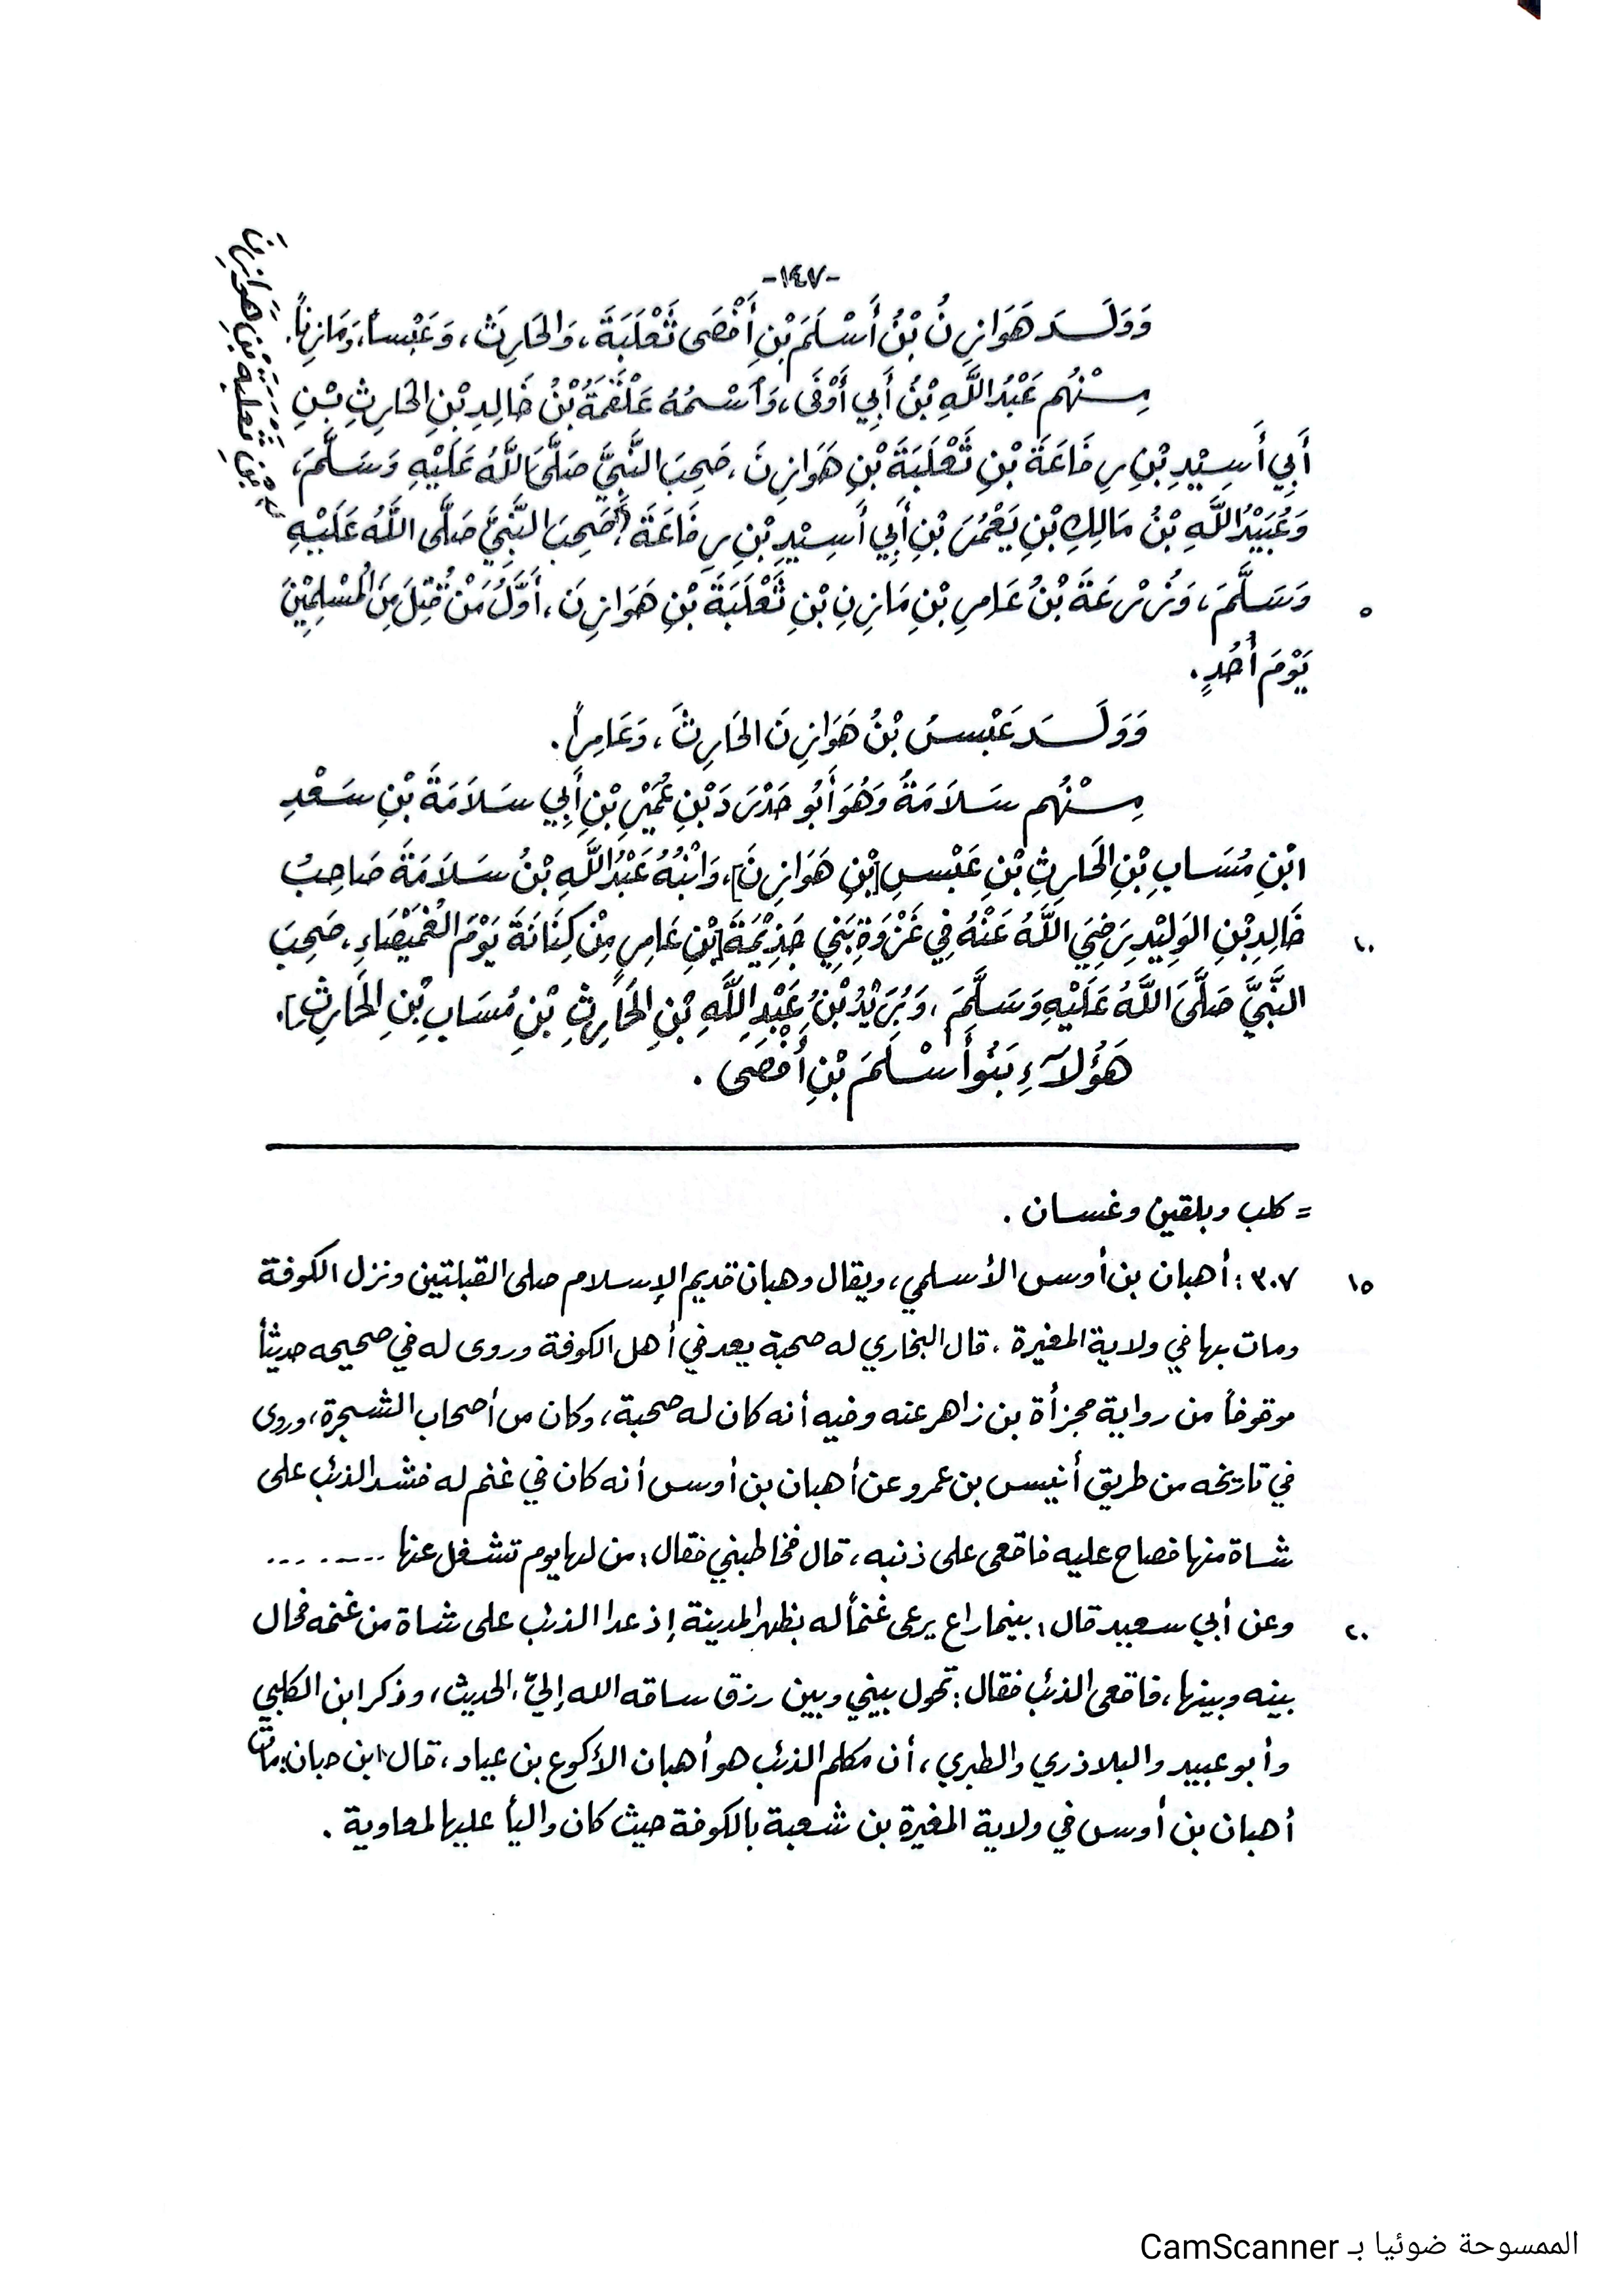 -١٤٧-
وَوَلَـــدَ هَوَازِنُ بْنُ أَسْلَمَ بْنِ أَفْصَى ثَعْلَبَةَ، وَالحَارِثَ، وَعَبْساً، وَمَازِناً.
مِــنْهُم عَبْدُ اللَّهِ بْنُ أَبِي أَوْفَى، وَاسْمُهُ عَلْقَمَةُ بْنُ خَالِدِ بْنِ الحَارِثِ بْنِ
أَبِي أَسِيْدِ بْنِ رِفَاعَةَ بْنِ ثَعْلَبَةَ بْنِ هَوَازِنَ، صَحِبَ النَّبِيَّ صَلَّى اللَّهُ عَلَيْهِ وَسَلَّمَ،
وَعُبَيْدُ اللَّهِ بْنُ مَالِكِ بْنِ يَعْمُرَ بْنِ أَبِي أَسِيْدِ بْنِ رِفَاعَةَ، صَحِبَ النَّبِيَّ صَلَّى اللَّهُ عَلَيْهِ
بْنِ ثَعْلَبَةَ بْنِ هَوَازِنَ
٥ وَسَلَّمَ، وَزُرْعَةُ بْنُ عَامِرِ بْنِ مَازِنِ بْنِ ثَعْلَبَةَ بْنِ هَوَازِنَ، أَوَّلُ مَنْ قُتِلَ مِنَ المُسْلِمِيْنَ
يَوْمَ أُحُدٍ.
وَوَلَـــدَ عَبْسُ بْنُ هَوَازِنَ الحَارِثَ، وَعَامِراً.
مِــنْهُم سَلاَمَةُ وَهُوَ أَبُو حَدْرَدَ بْنِ عُمَيْرِ بْنِ أَبِي سَلاَمَةَ بْنِ سَعْدِ
ابْنِ مُسَابِ بْنِ الحَارِثِ بْنِ عَبْسِ [بْنِ هَوَازِنَ]، وَابْنُهُ عَبْدُ اللَّهِ بْنُ سَلاَمَةَ صَاحِبُ
١٠ خَالِدِ بْنِ الوَلِيْدِ رَضِيَ اللَّهُ عَنْهُ فِي غَزْوَةِ بَنِي جَذِيْمَةَ [بْنِ عَامِرٍ مِنْ كِنَانَةَ يَوْمَ الغُمَيْصَاءِ، صَحِبَ
النَّبِيَّ صَلَّى اللَّهُ عَلَيْهِ وَسَلَّمَ، وَبُرَيْدُ بْنُ عَبْدِ اللَّهِ بْنِ الحَارِثِ بْنِ مُسَابِ بْنِ الحَارِثِ].
هَؤُلَآءِ بَنُو أَسْلَمَ بْنِ أَفْصَى .
= كلب وبلقين وغسان .
١٥ ٣٠٧: أهبان بن أوس الأسلمي، ويقال وهبان قديم الإسلام صلى القبلتين ونزل الكوفة
ومات بها في ولاية المغيرة ، قال البخاري له صحبة يعد في أهل الكوفة وروى له في صحيحه حديثاً
موقوفاً من رواية مجزأة بن زاهر عنه وفيه أنه كان له صحبة، وكان من أصحاب الشجرة، وروى
في تاريخه من طريق أنيس بن عمرو عن أهبان بن أوس أنه كان في غنم له فشد الذئب على
شاة منها فصاح عليه فاقعى على ذنبه، قال فخاطبني فقال: من لها يوم تشغل عنها .........
٢٠ وعن أبي سعيد قال: بينما راع يرعى غنماً له بظهر المدينة إذ عدا الذئب على شاة من غنمه فحال
بينه وبينها، فاقعى الذئب فقال: تحول بيني وبين رزق ساقه الله إليّ، الحديث، وذكر ابن الكلبي
وأبو عبيد والبلاذري والطبري، أن مكلم الذئب هو أهبان الأكوع بن عياد، قال ابن حبان: مات
أهبان بن أوس في ولاية المغيرة بن شعبة بالكوفة حيث كان والياً عليها لمعاوية .
الممسوحة ضوئيا بـ CamScanner